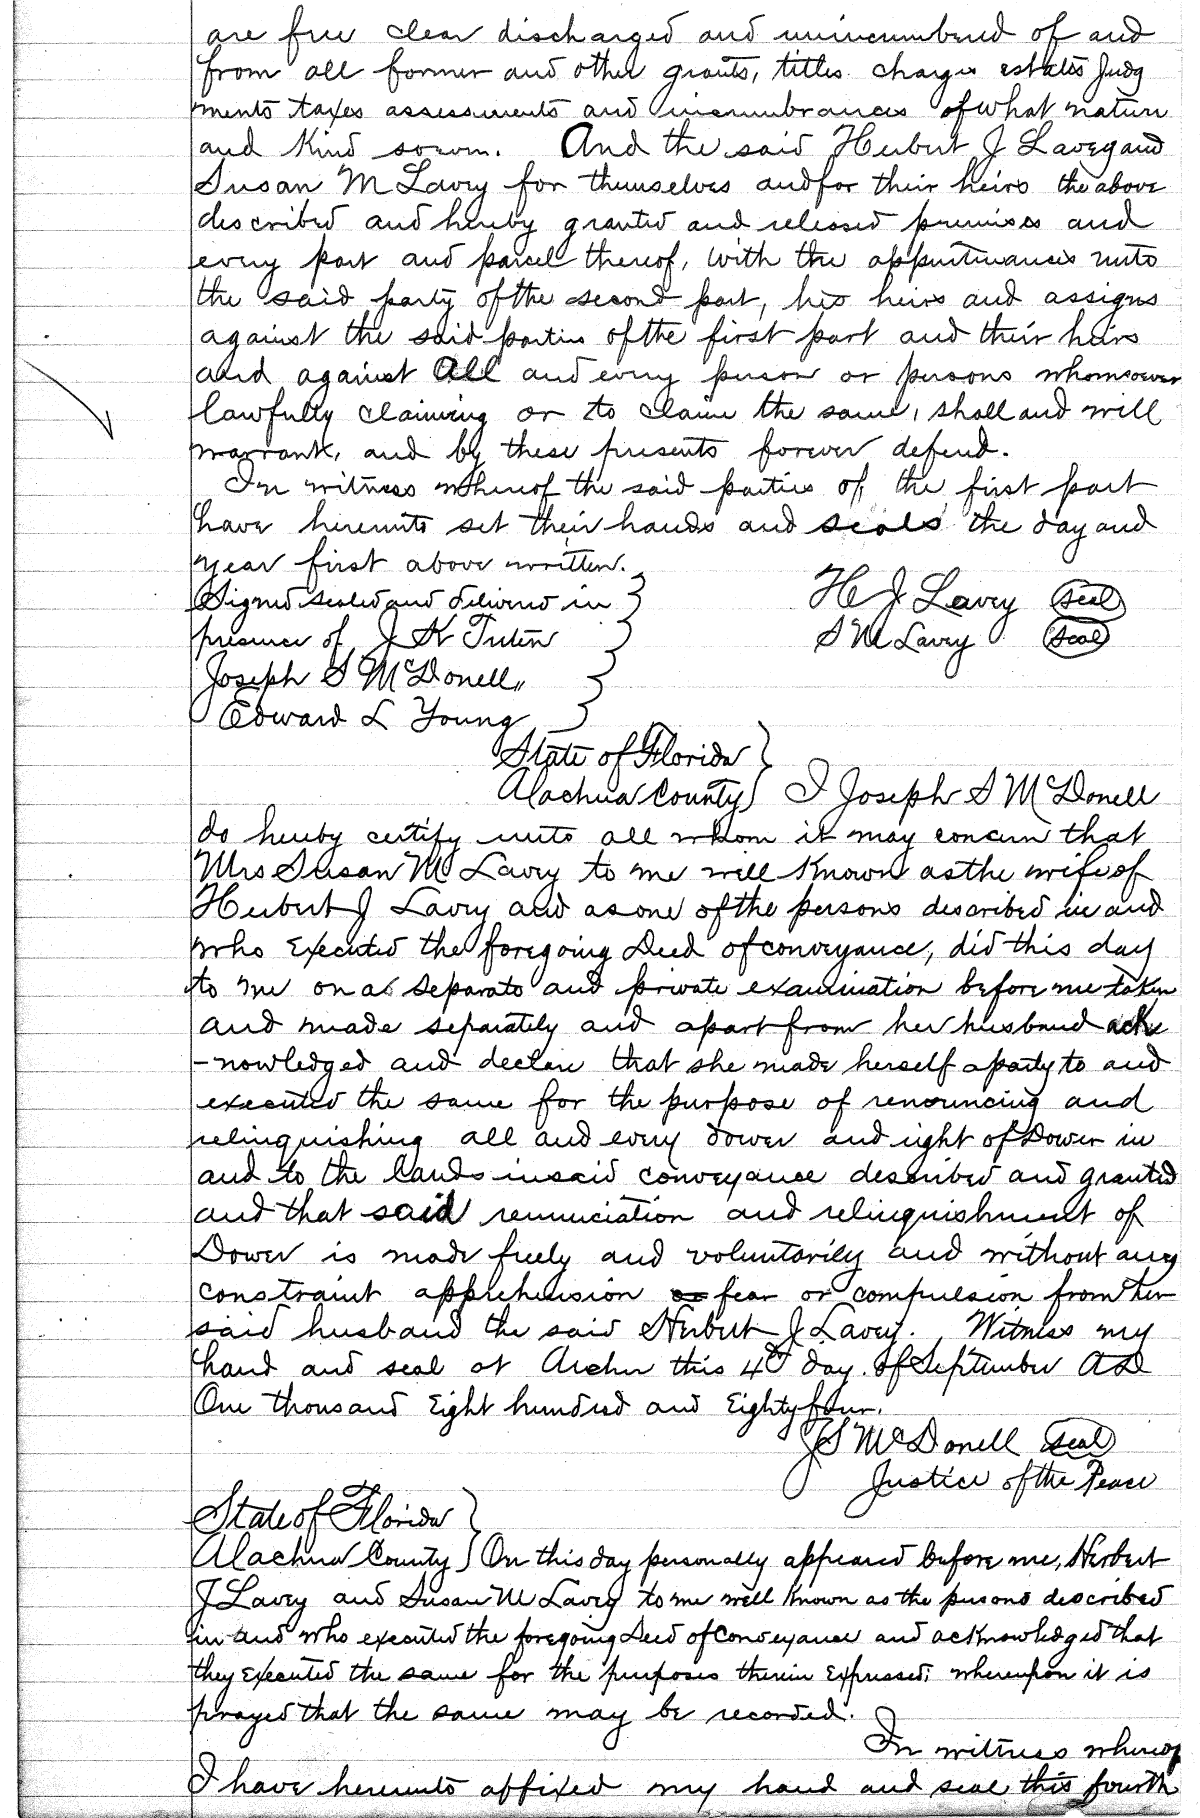 are free clear discharged and unincumbered of and
from all former and other grants, titles charges estates Judg
ments taxes assessments and incumbrances of what nature
and Kind soever. And the said Herbert J Lavey and
Susan M Lavey for themselves and for their heirs the above
described and hereby granted and released premises and
every part and parcel thereof, with the appurtinances unto
the said party of the second part, his heirs and assigns
against the said parties of the first part and their heirs
and against All and every person or persons whomsoever
lawfully claiming or to claim the same, shall and will
warrant, and by these presents forever defend.
In witness whereof the said parties of the first part
have hereunto set their hands and seals the day and
year first above written.
Signed sealed and delivered in } H J Lavey (seal)
presence of J H Tuten } S M Lavey (seal)
Joseph S McDonell }
Edward L Young }
State of Florida }
Alachua County } I Joseph S McDonell
do hereby certify unto all whom it may concern that
Mrs Susan M Lavey to me well Known as the wife of
Herbert J Lavey and as one of the persons described in and
who Executed the foregoing Deed of conveyance, did this day
to me on a separate and private examination before me taken
and made separately and apart from her husband ack
-nowledged and declare that she made herself a party to and
executed the same for the purpose of renouncing and
relinquishing all and every dower and right of Dower in
and to the lands in said conveyance described and granted
and that said renunciation and relinquishment of
Dower is made freely and voluntarily and without any
constraint apprehension or fear or compulsion from her
said husband the said Herbert J Lavey. Witness my
hand and seal at Archer this 4th day of September AD
One thousand Eight hundred and Eighty four.
J S McDonell (seal)
Justice of the Peace
State of Florida }
Alachua County } On this day personally appeared before me, Herbert
J Lavey and Susan M Lavey to me well Known as the persons described
in and who executed the foregoing Deed of Conveyance and acknowledged that
they Executed the same for the purposes therein Expressed; whereupon it is
prayed that the same may be recorded.
In witness whereof
I have hereunto affixed my hand and seal this fourth